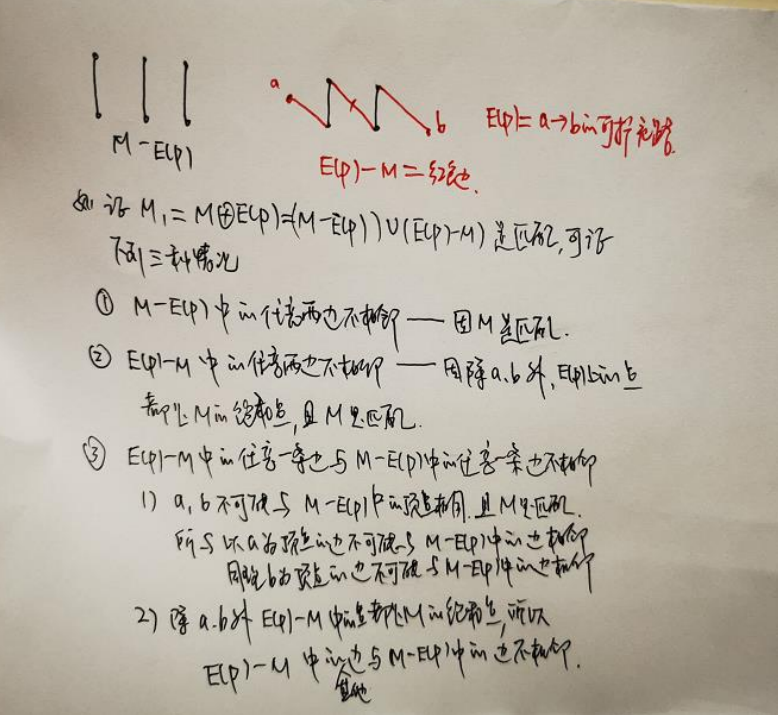 a
b
M-E(p)
E(p)=a→b的可扩充路.
E(p)-M=红色边.
如证 M₁=M⊕E(p)=(M-E(p))∪(E(p)-M) 是匹配,可证
下列三种情况
① M-E(p)中的任意两边不相邻——因M是匹配.
② E(p)-M中的任意两边不相邻——因除a.b外,E(p)上的点
都是M的饱和点,且M是匹配.
③ E(p)-M中的任意一条边与M-E(p)中的任意一条边不相邻
1) a,b不可能与M-E(p)中的顶点相同.且M是匹配.
所以以a为顶点的边不可能与M-E(p)中的边相邻
同理b为顶点的边不可能与M-E(p)中的边相邻
2) 除a.b外E(p)-M中的点都是M的饱和点,所以
E(p)-M中的边与M-E(p)中的边不相邻.
其他